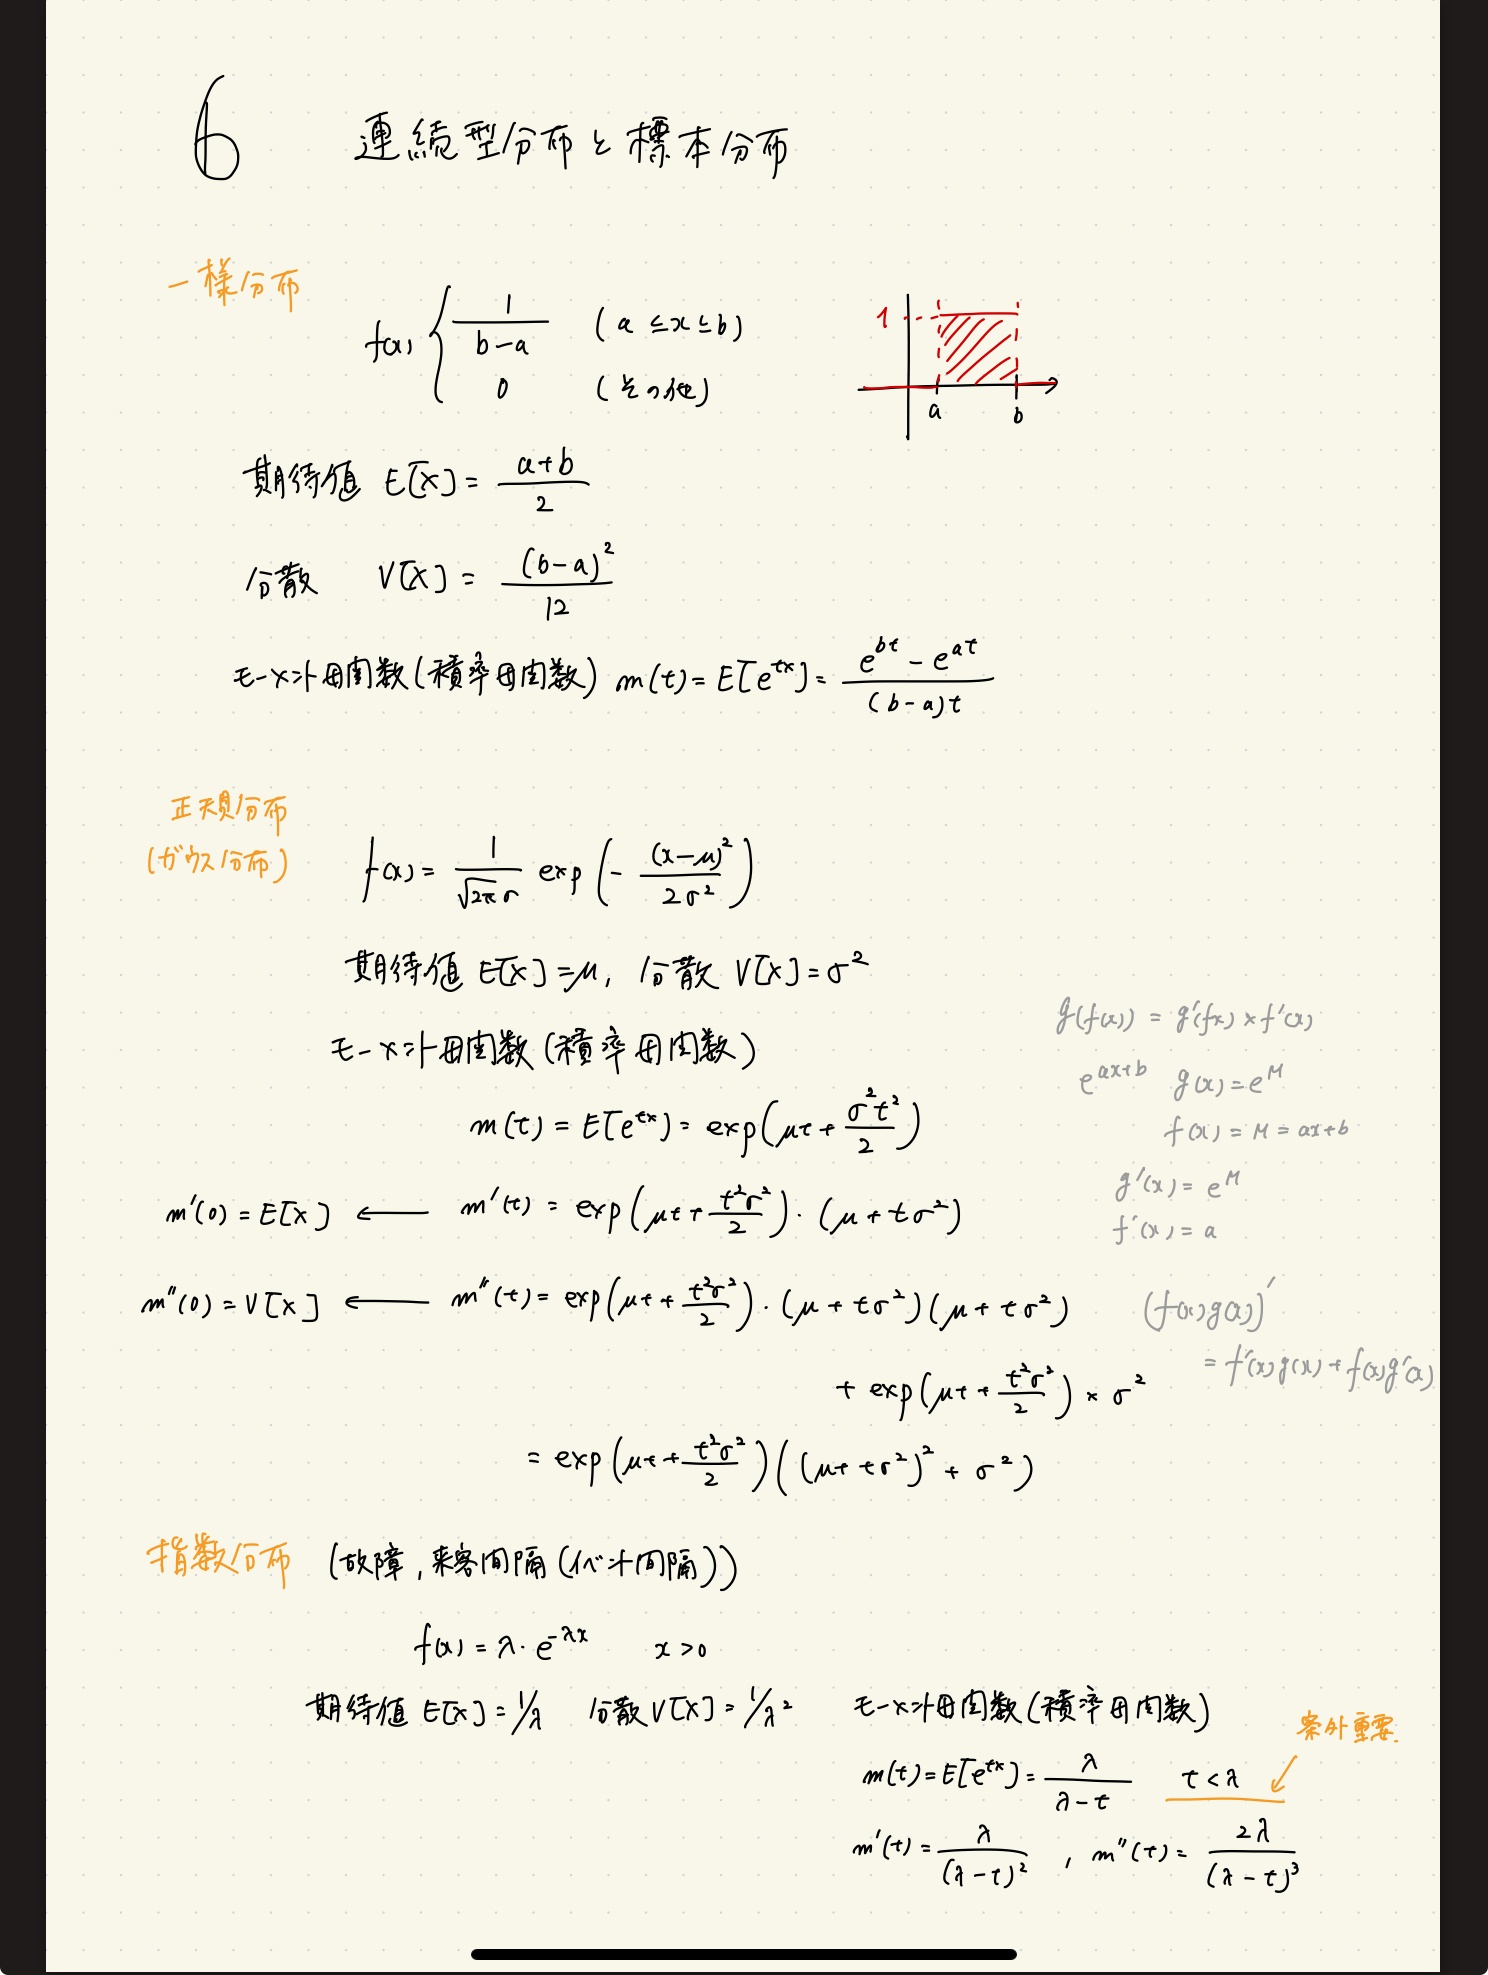 6 連続型分布と標本分布
一様分布
f(x) { 1/(b-a) (a ≦ x ≦ b)
0 (その他)
1
a b
期待値 E[X] = (a+b)/2
分散 V[X] = (b-a)²/12
モーメント母関数(積率母関数) m(t) = E[e^{tx}] = (e^{bt} - e^{at})/((b-a)t)
正規分布
(ガウス分布)
f(x) = 1/(√2π σ) exp(- (x-μ)²/2σ²)
期待値 E[X] = μ, 分散 V[X] = σ²
モーメント母関数(積率母関数)
m(t) = E[e^{tx}] = exp(μt + σ²t²/2)
m'(0) = E[X] ← m'(t) = exp(μt + t²σ²/2)・(μ + tσ²)
m''(0) = V[X] ← m''(t) = exp(μt + t²σ²/2)・(μ + tσ²)(μ + tσ²)
+ exp(μt + t²σ²/2) × σ²
= exp(μt + t²σ²/2)((μ + tσ²)² + σ²)
g(f(x)) = g'(fx) × f'(x)
e^{ax+b} g(x) = e^M
f(x) = M = ax+b
g'(x) = e^M
f'(x) = a
(f(x)g(x))'
= f'(x)g(x) + f(x)g'(x)
指数分布 (故障, 来客間隔(イベント間隔))
f(x) = λ・e^{-λx} x > 0
期待値 E[X] = 1/λ 分散 V[X] = 1/λ² モーメント母関数(積率母関数)
案外重要
m(t) = E[e^{tx}] = λ/(λ-t) t < λ
m'(t) = λ/(λ-t)² , m''(t) = 2λ/(λ-t)³